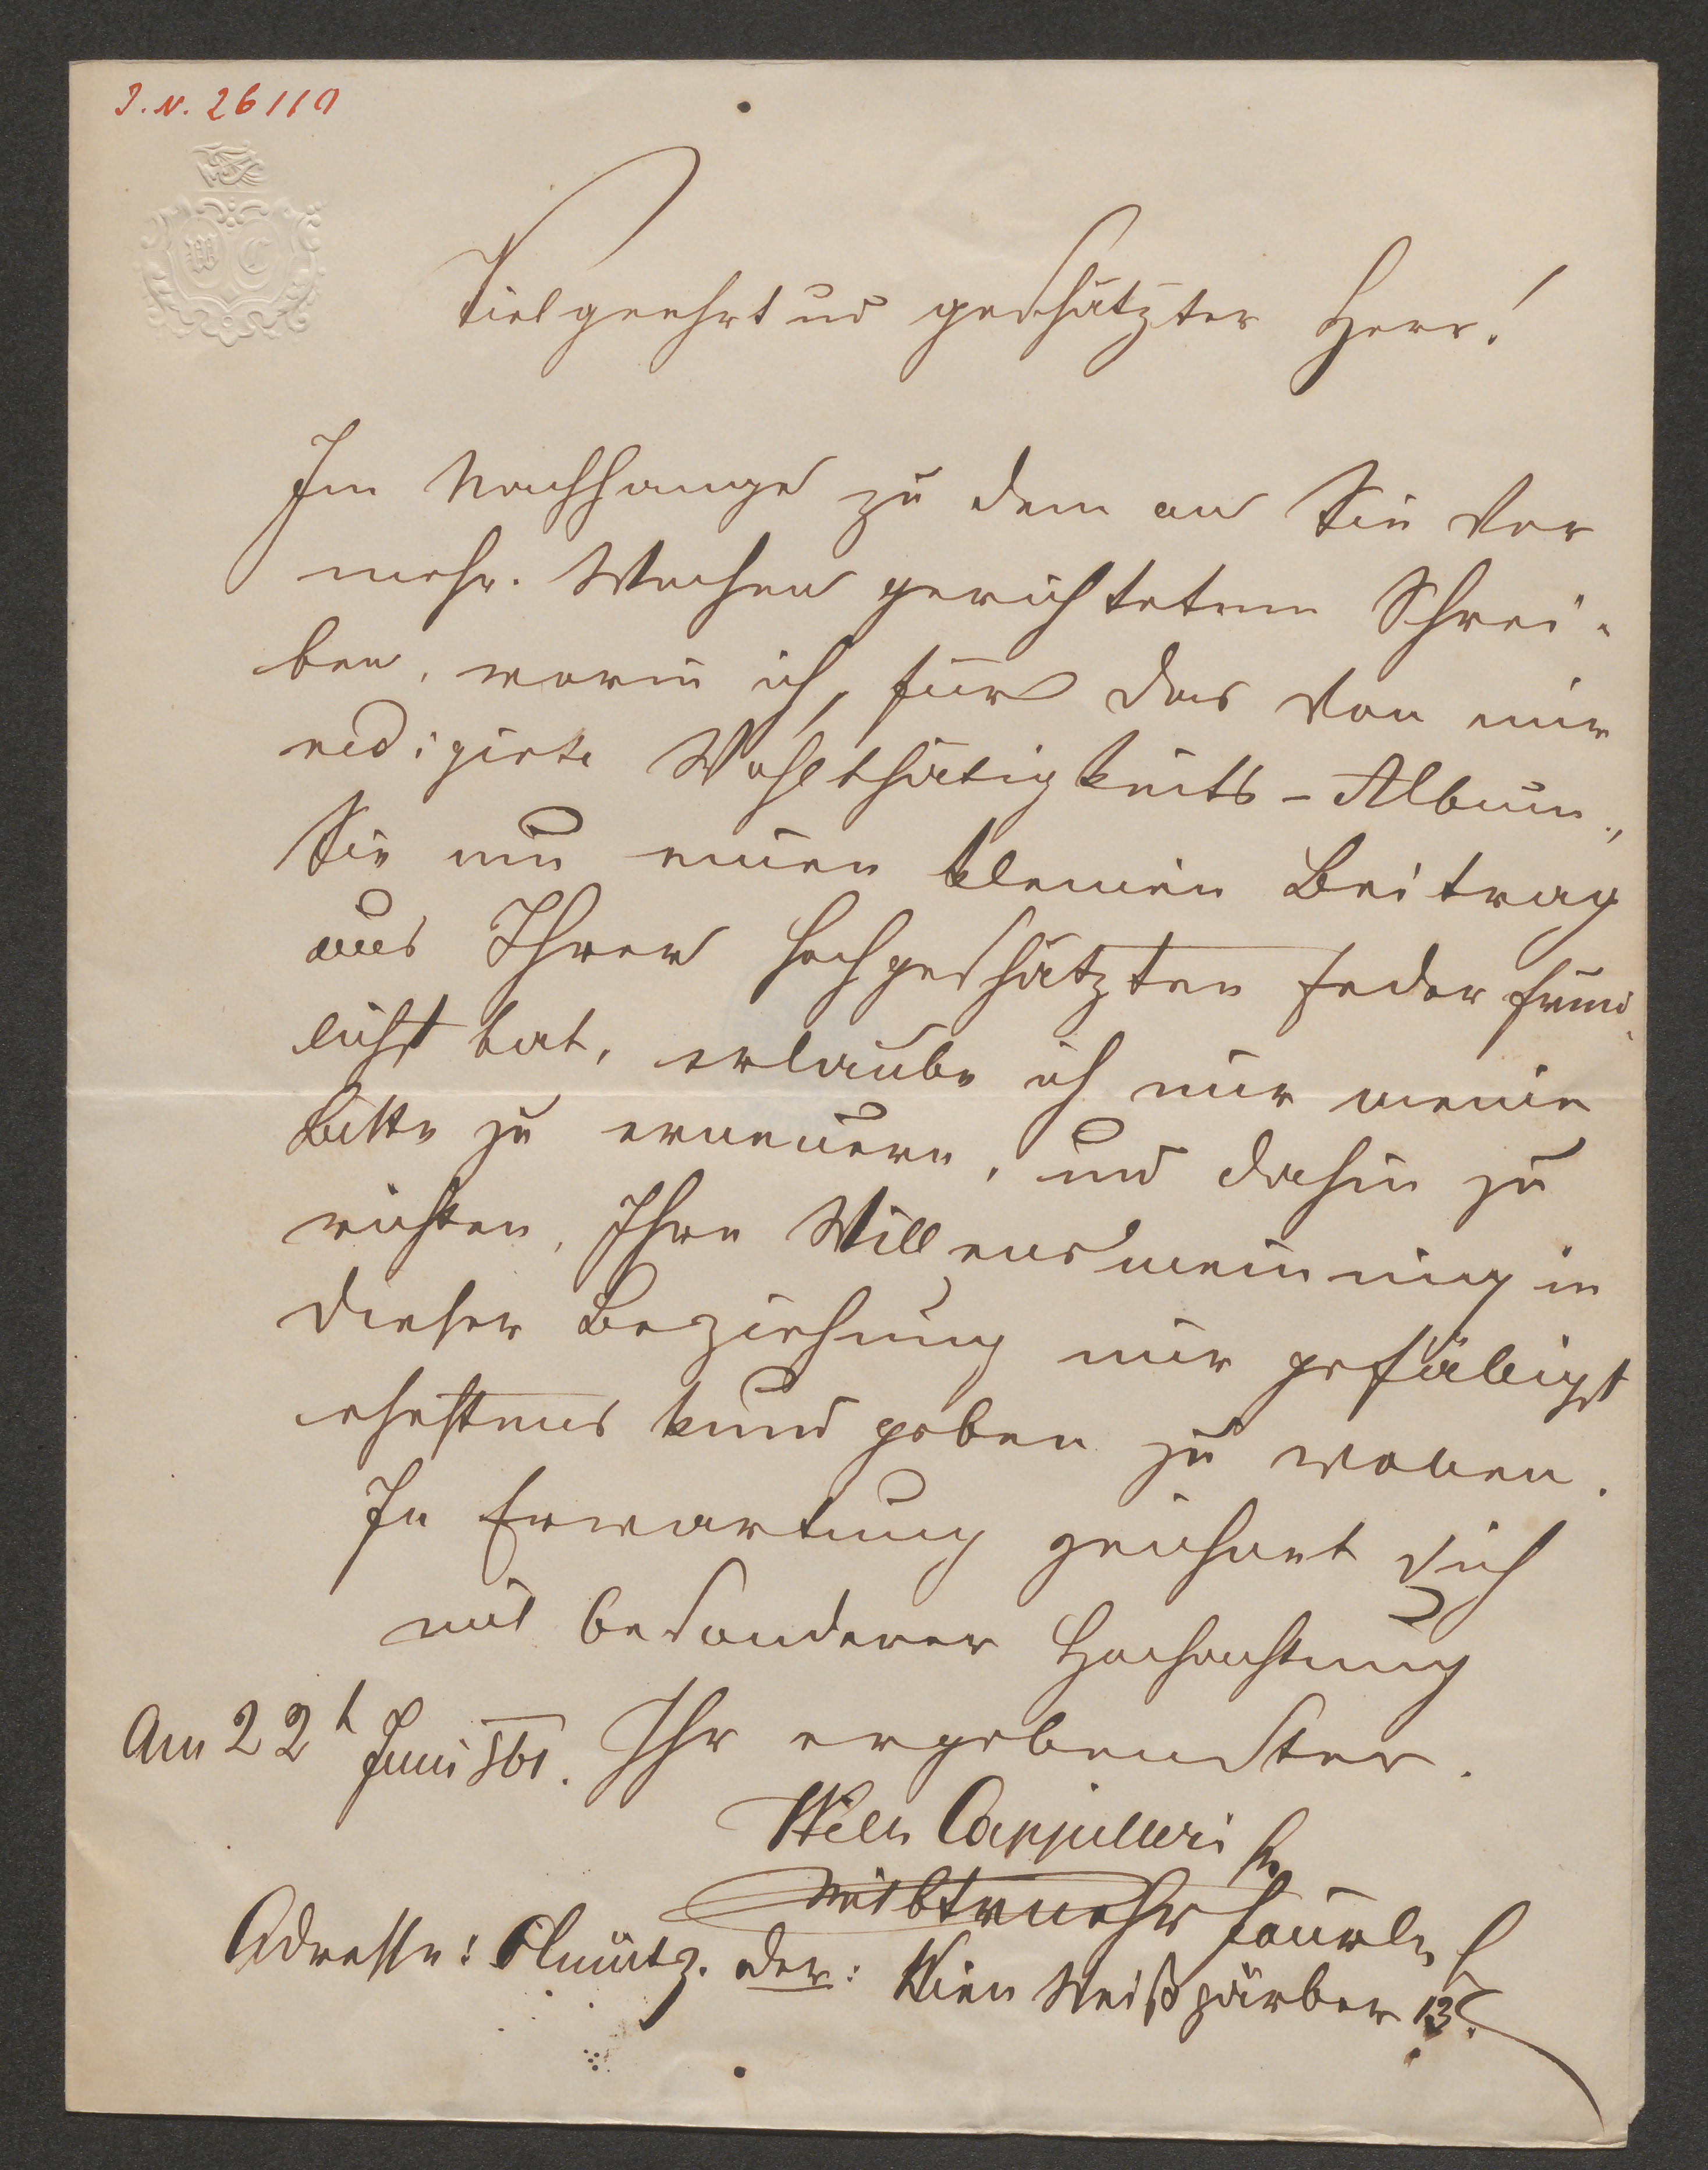 I.N. 26110
W C
Vielgeehrt und geschätzter Herr!
Im Nachhange zu dem an Sie vor
mehr. Wochen gerichteten Schrei-
ben, worin ich, für das von mir
redigirte Wohlthätigkeits-Album,
Sie um einen kleinen Beitrag
aus Ihrer hochgeschätzten Feder freund-
lichst bat, erlaube ich mir meine
Bitte zu erneuern, und dahin zu
richten, Ihre Willensmeinung in
dieser Beziehung mir gefälligst
ehestens kund geben zu wollen.
In Erwartung zeichnet sich
mit besonderer Hochachtung
Am 22t Juni 861. Ihr ergebenster
Wilh Cappilleri
Adresse: Olmütz. oder: Wien Weißgärber 13.